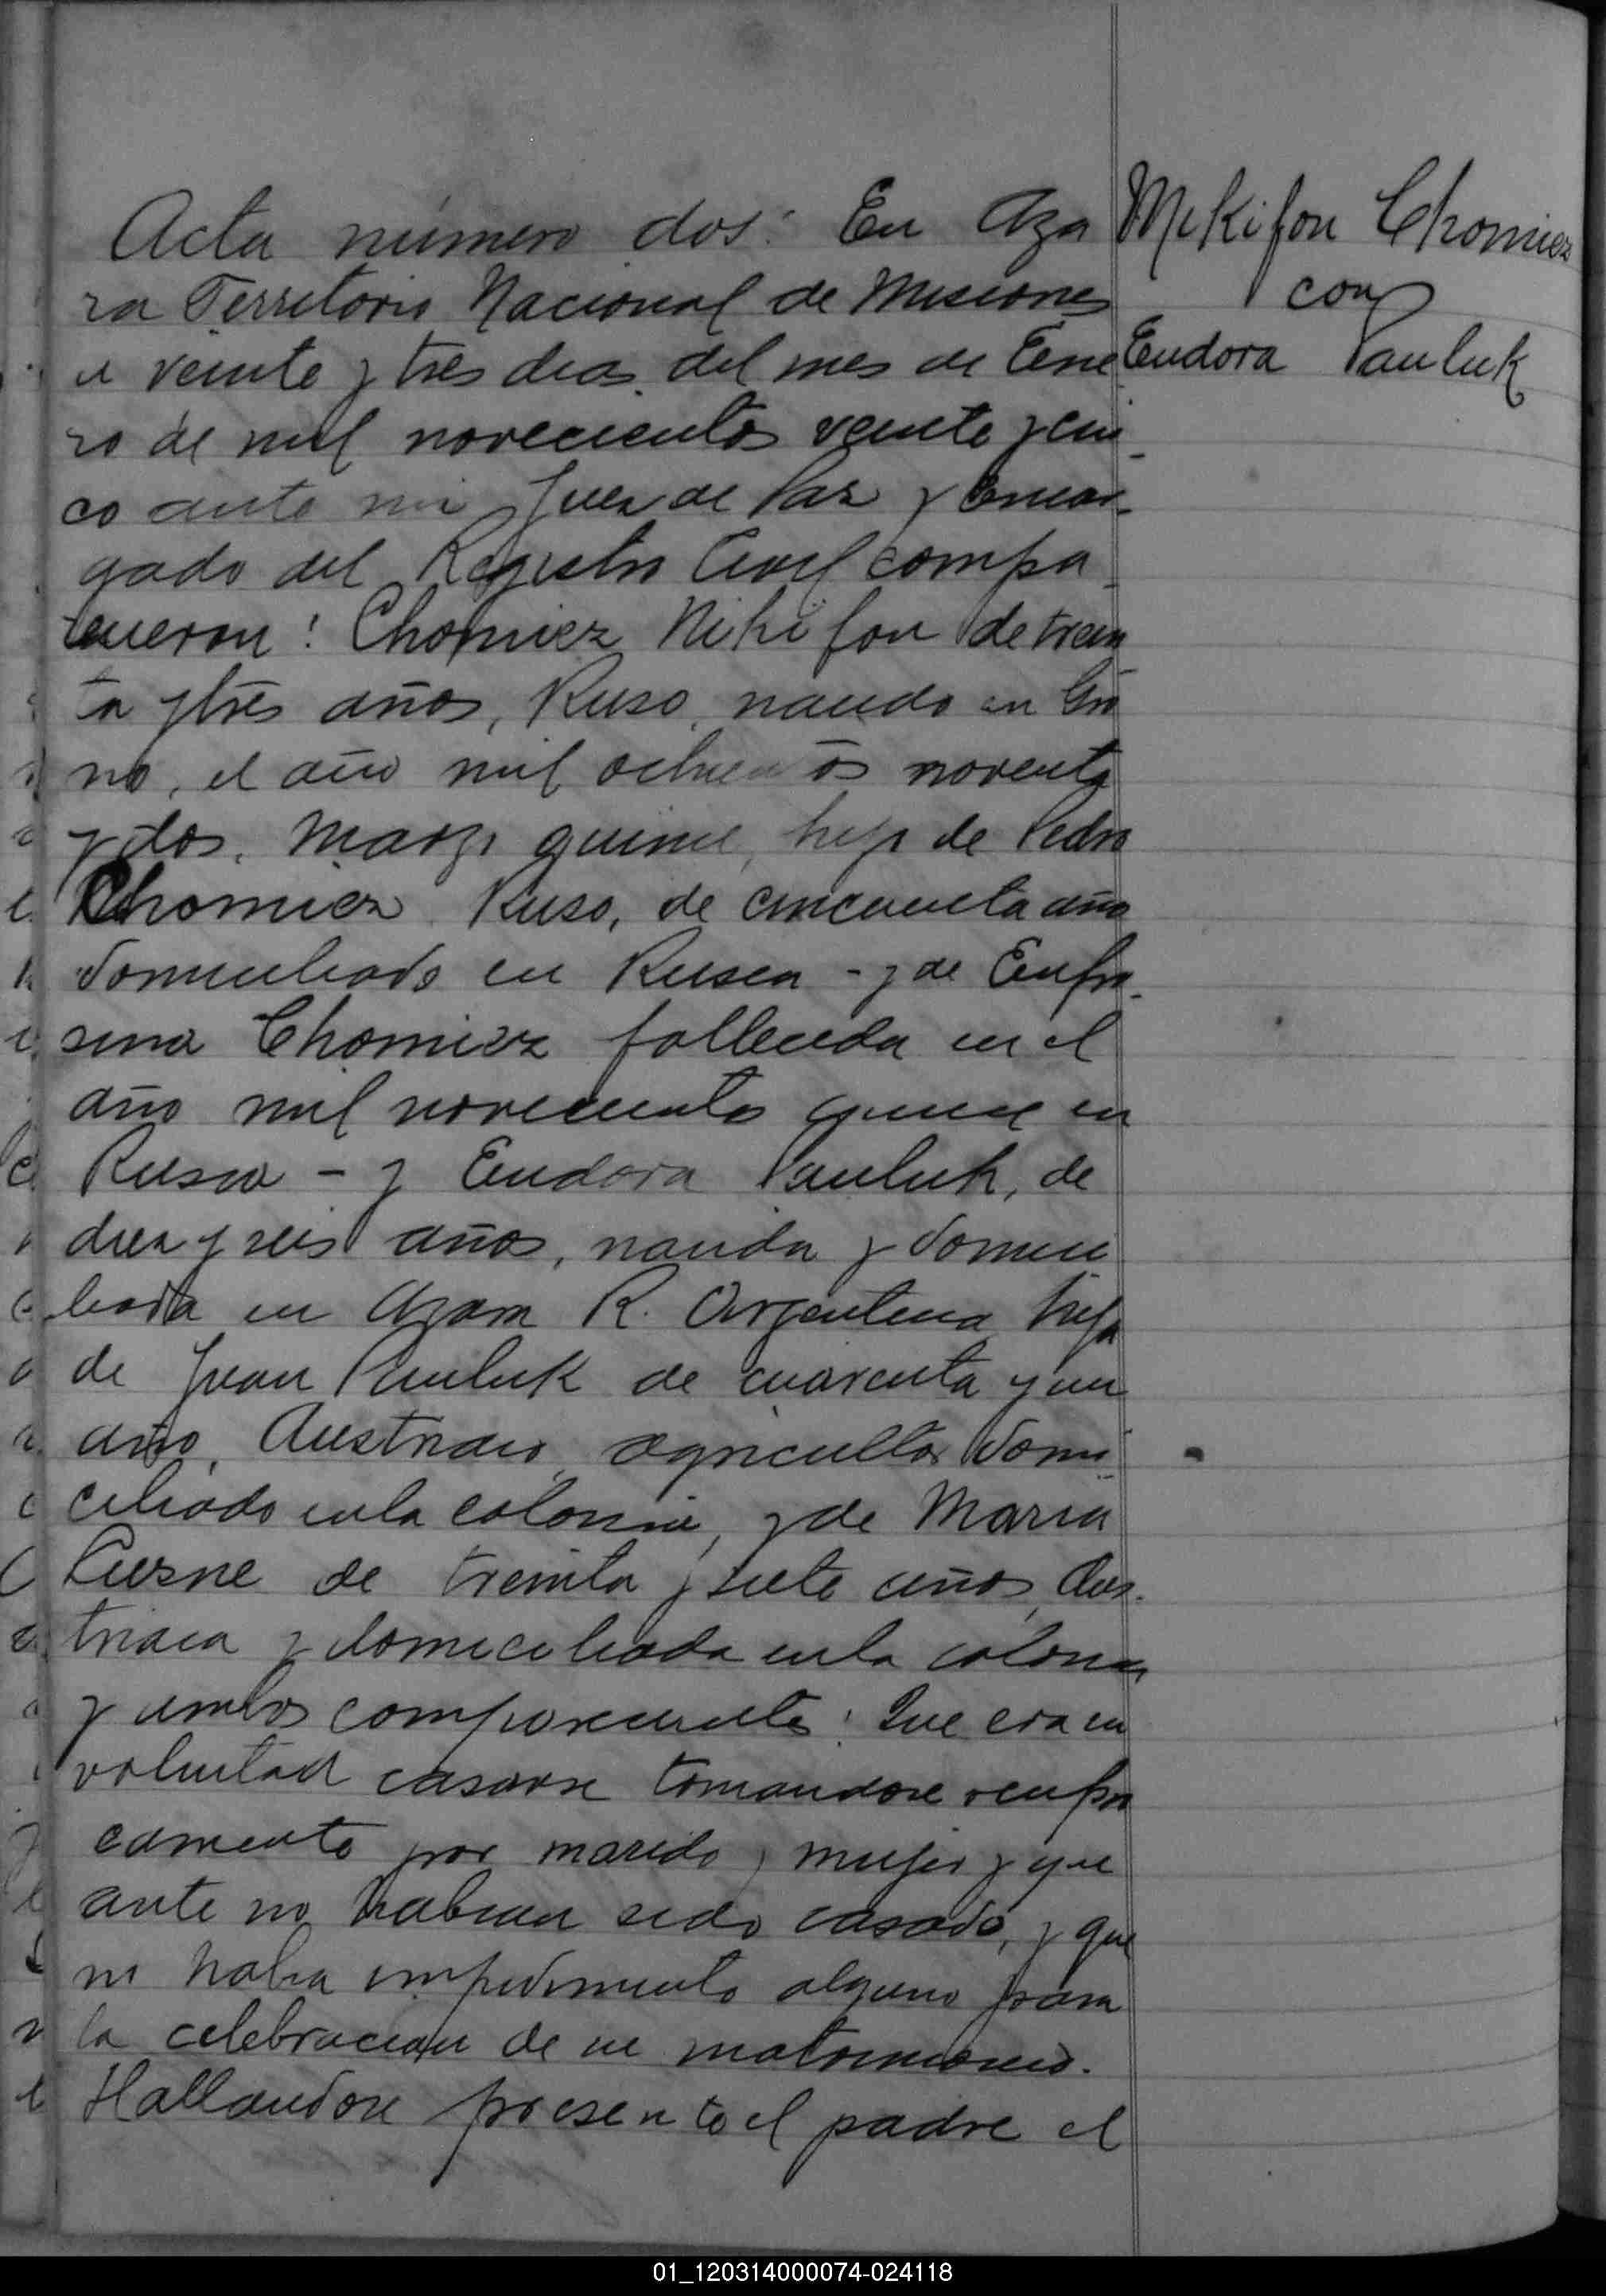 Acta número dos: En Aza
ra Territorio Nacional de Misiones
a veinte y tres dias del mes de Ene
ro de mil novecientos veinte y cin-
co ante mi Juez de Paz y Encar-
gado del Registro Civil compa-
recieron: Chomiez Nikifon de trein
ta y tres años, Ruso, nacido en Gro
no, el año mil ochocientos noventa
y dos, Marzo quince, hijo de Pedro
Chomiez Ruso, de cincuenta años
domiciliado en Rusia - y de Eufro-
sina Chomiez fallecida en el
año mil novecientos quince en
Rusia - y Eudora Pauluk, de
diez y seis años, nacida y domici
liada en Azara R. Argentina hija
de Juan Pauluk de cuarenta y un
año, Austriaco agricultor domi-
ciliado en la colonia, y de Maria
de treinta y siete años, Aus-
triaca y domiciliada en la colonia
y ambos comparecientes: Que era su
voluntad casarse tomandose recipro
camente por marido y mujer y que
ante no habian sido casado, y que
ni habia impedimento alguno para
la celebracion de su matrimonio.
Hallandose presente el padre el
Mikifon Chomiez
con
Eudora Pauluk
01_120314000074-024118